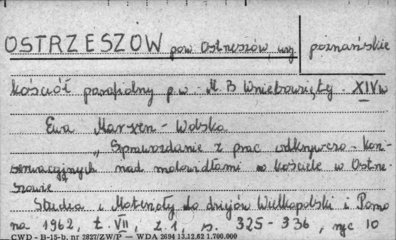 OSTRZESZÓW pow Ostrzeszów, woj poznańskie
kościół parafialny p.w. M B Wniebowzięty. XIV w
Ewa Marxen-Wolska
"Sprawozdanie z prac odkrywczo-kon-
serwacyjnych nad malowidłami w kościele w Ostrze-
szowie
Studia i Materiały do dziejów Wielkopolski i Pomo
na 1962, t. VII, z. 1, s. 325-336, ryc 10
CWD - B-15-b, nr 2827/ZW/P — WDA 2694 13.12.62 1.700.000